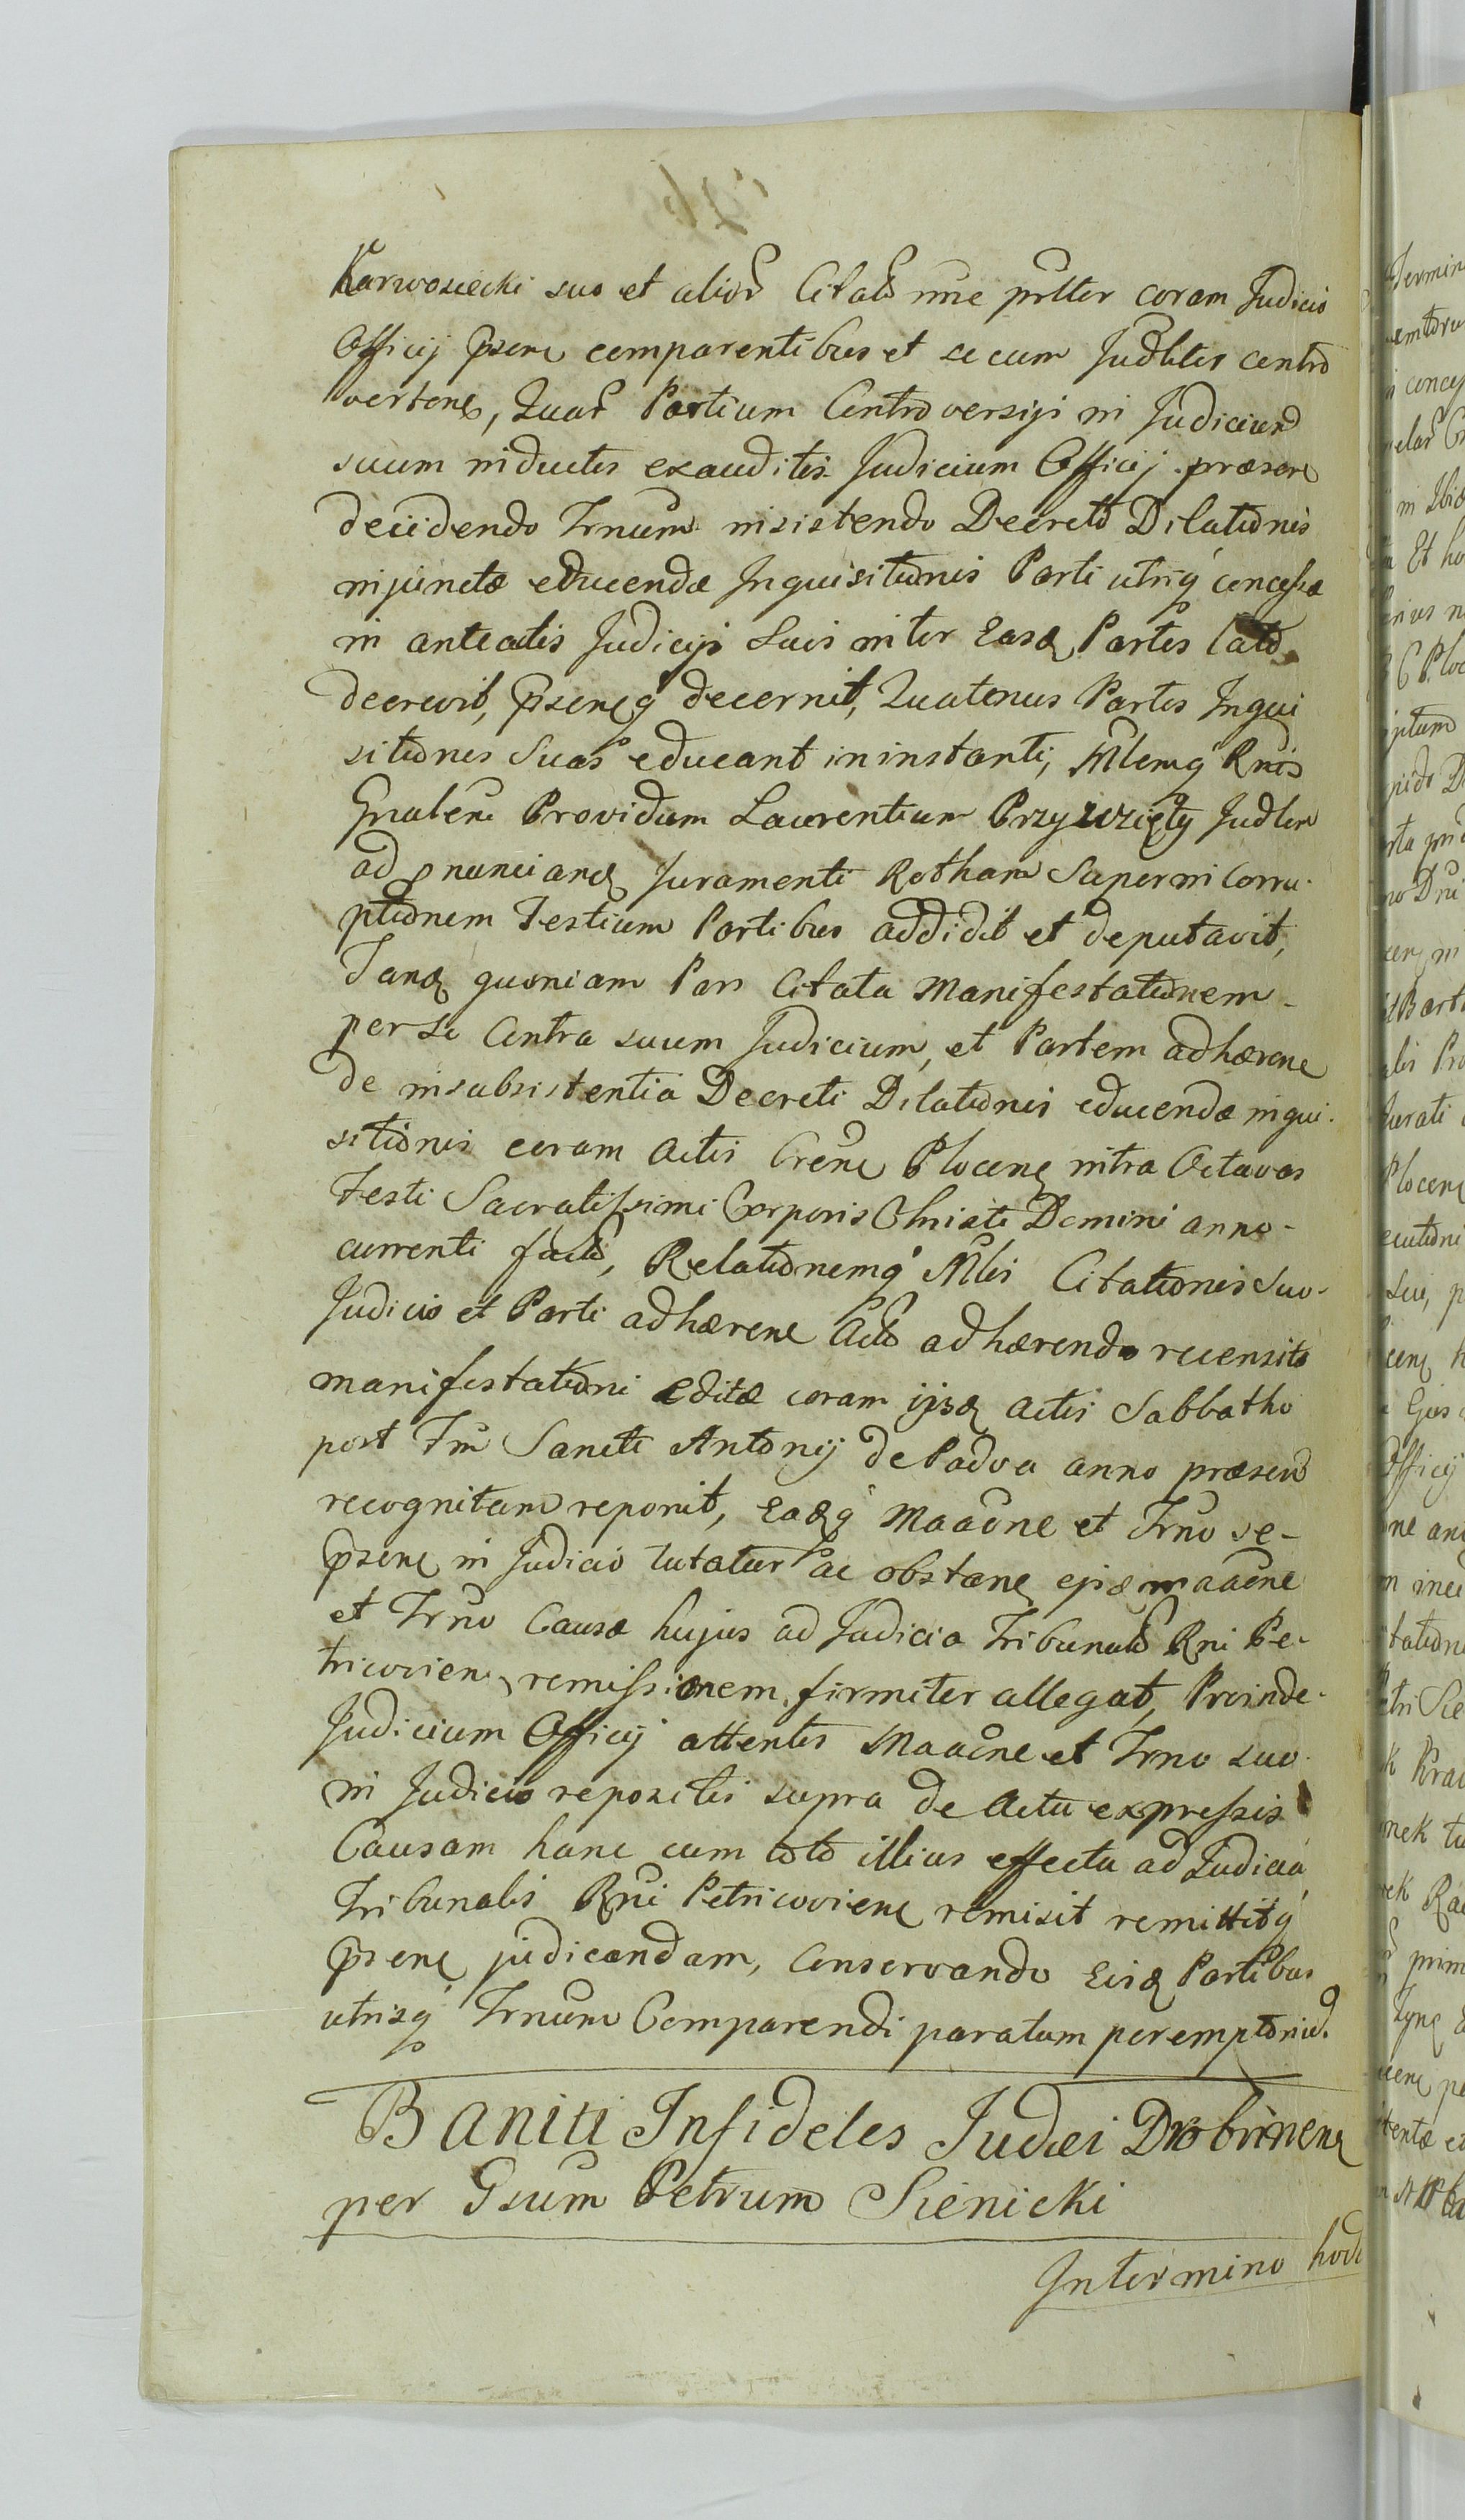 Karwosiecki suo et alior Citator nne prltter coram Judicio
Officij psene comparentibus et secum Judltes contro
vertene, Quar Partium Controversijs in Judicium
suum inductis exauditis Judicium Officij præsene
decidendo Trnum insistendo Decreto Dilationis
injunctæ educendæ Inquisitionis Parti utriq concessæ
in anteatis Judicijs suis inter Easq Partes lato
decrevit, pseneq decernit, Quatenus Partes Inqui
sitiones Suas educant in instanti, Mlemq Rnis
Gnalem Providum Laurentium Przywzięty Judlem
ad pnunciand Juramenti Rotham Super in Corru
ptionem Testium Partibus addidit et deputavit,
Tand quoniam Pars Citata Manifestationem
per se Contra suum Judicium, et Partem adhærene
de insubsistentia Decreti Dilationis educendæ inqui
sitionis coram Actis Crene Plocene intra Octavas
Festi Sacratissimi Corporis Christi Domini anno
currenti facta, Relationemq Mlis Citationis Suo
Judicio et Parti adhærene Actor adhærendo recensito
manifestationi editæ coram ijsq Actis Sabbatho
post Fm Sancti Antonij de Padva anno præsen
recognitam reponit, Eaqq Maaone et Trno se
psene in Judicio tutatur ac obstane ejs maaone
et Trno Causæ hujus ad Judicia Tribunalis Rni Pe
tricoviene remissionem firmiter allegat, Proinde
Judicium Officij attentis Maaone et Trno suo
in Judicio repositis supra de Actu expressis
Causam hanc cum toto illius effectu ad Judicia
Tribunalis Rni Petricoviene remisit remittitq
psene judicandam, Conservando Eisq Partibus
utrisq Trnum Comparendi paratum peremptorium.
Baniti Infideles Judæi Drobinene
per Gsum Petrum Sienicki
In termino hod